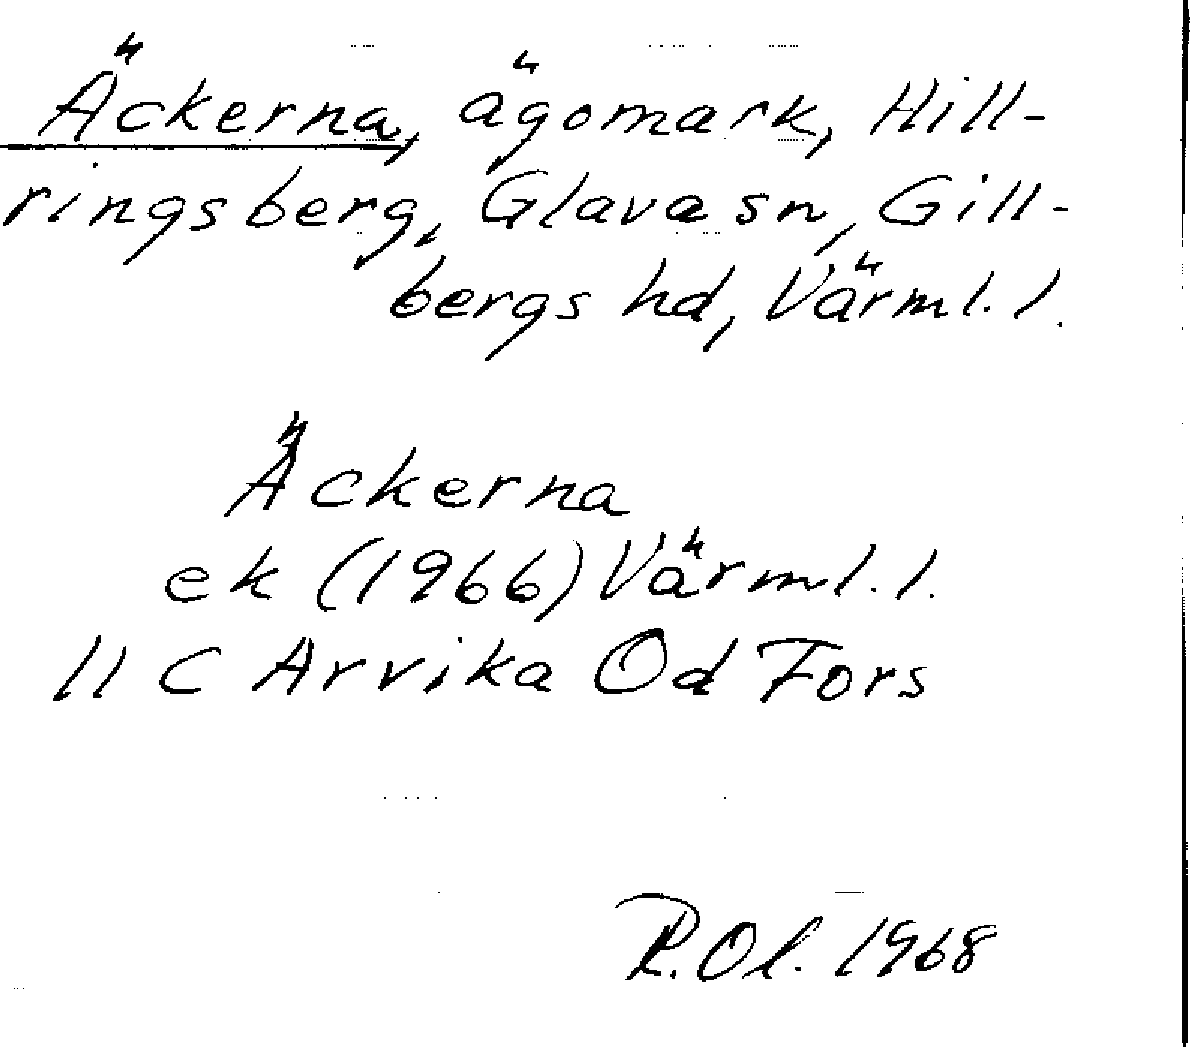 Äckerna, ägomark, Hill-
ringsberg, Glava sn, Gill-
bergs hd, Värml. l.
Äckerna
ek (1966) Värml. l.
11 C Arvika Od Fors
R. Ol. 1968